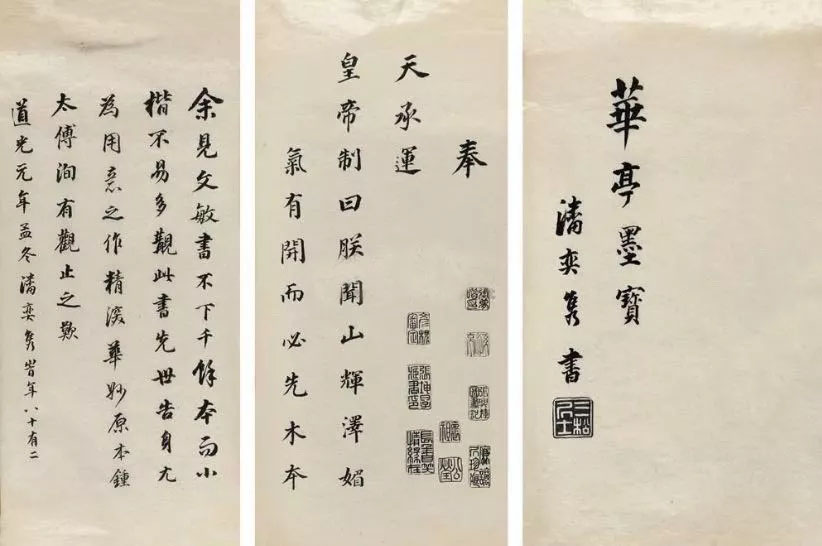 華亭墨寶
潘奕雋書
三松居士
奉
天承運
皇帝制曰朕聞山輝澤媚
氣有開而必先木本
余見文敏書不下千餘本而小
楷不易多覯此書先世告身尤
為用意之作精湛華妙原本鍾
太傅洵有觀止之歎
道光元年孟冬潘奕雋旹年八十有二